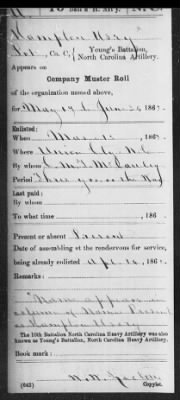 10 Batt'n H. Art'y. N.C.
Hampton Usry
Pvt, Co. C, Young's Battalion,
North Carolina Artillery.
Appears on
Company Muster Roll
of the organization named above,
for May 19 to June 30, 186
Enlisted:
When Mar. 15, 186
Where Union Co, N.C.
By whom
Period Three years or the War
Last paid:
By whom
To what time , 186 .
Present or absent Present
Date of assembling at the rendezvous for service,
being already enlisted Apr. 16, 186
Remarks:
Name appears in
column of Names Present
as Hampton
The 10th Battalion North Carolina Heavy Artillery was also
known as Young's Battalion, North Carolina Heavy Artillery.
Book mark:
(642) Copyist.